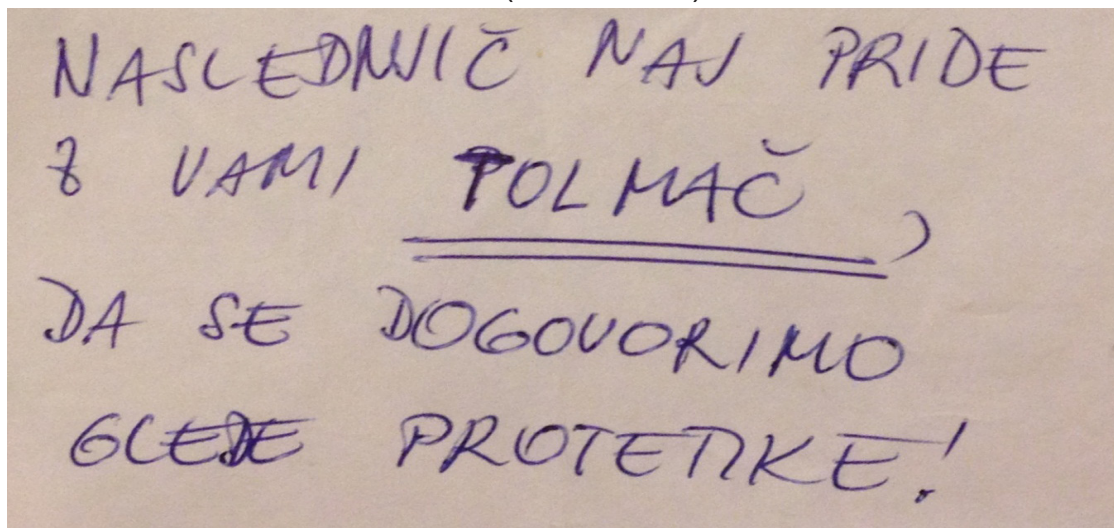 NASLEDNJIČ NAJ PRIDE
Z VAMI TOLMAČ,
DA SE DOGOVORIMO
GLEDE PROTETIKE!